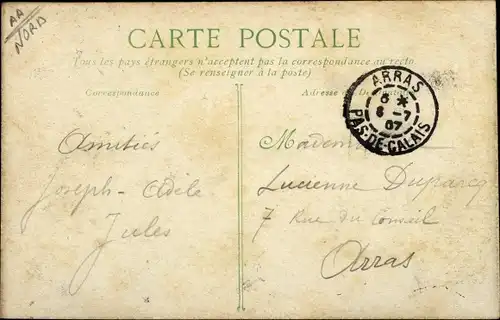 AA
NORD
CARTE POSTALE
Tous les pays étrangers n'acceptent pas la correspondance au recto
(Se renseigner à la poste)
Correspondance
Adresse
ARRAS
6 *
6-7
07
PAS-DE-CALAIS
Amitiés
Joseph - Adèle
Jules
Lucienne Duparcq
7 Rue du Conseil
Arras